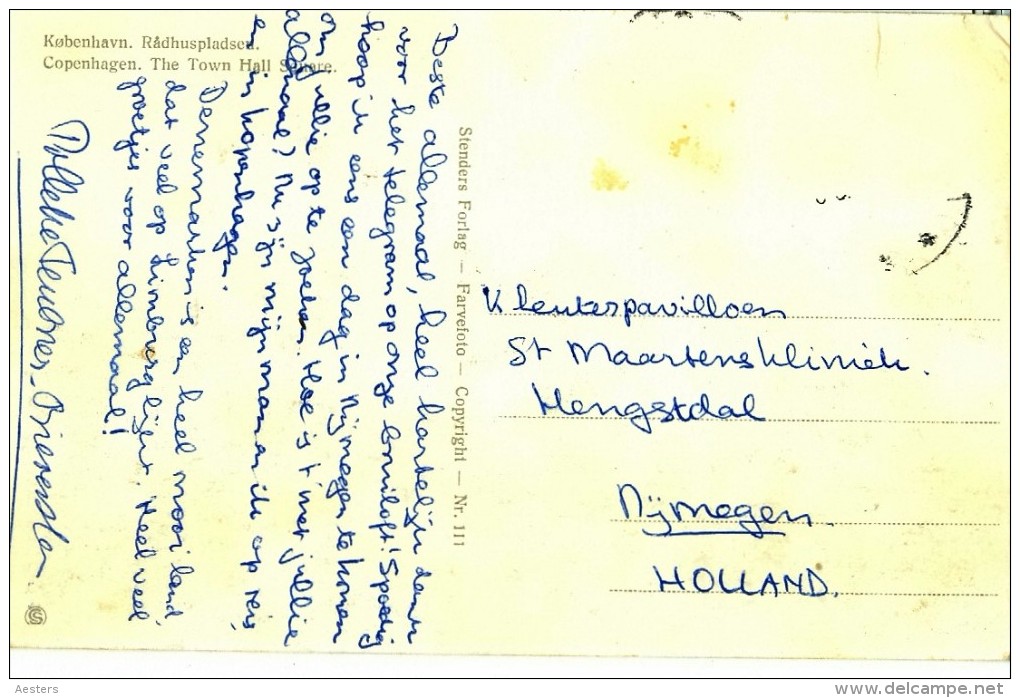 København. Rådhuspladsen.
Copenhagen. The Town Hall Square.
Beste allemaal, heel hartelijk dank
voor het telegram op onze bruiloft! Spoedig
hoop ik eens een dag in Nijmegen te komen
om jullie op te zoeken. Hoe is 't met jullie
allemaal? Nu zijn mijn man en ik op reis,
en in Kopenhagen.
Denemarken is een heel mooi land,
dat veel op Limburg lijkt. Heel veel
groetjes voor allemaal!
Stenders Forlag — Farvefoto — Copyright — Nr. 111
Kleuterpavilloen
St Maartenskliniek.
Hengstdal
Nijmegen.
HOLLAND.
Aesters
www.delcampe.net